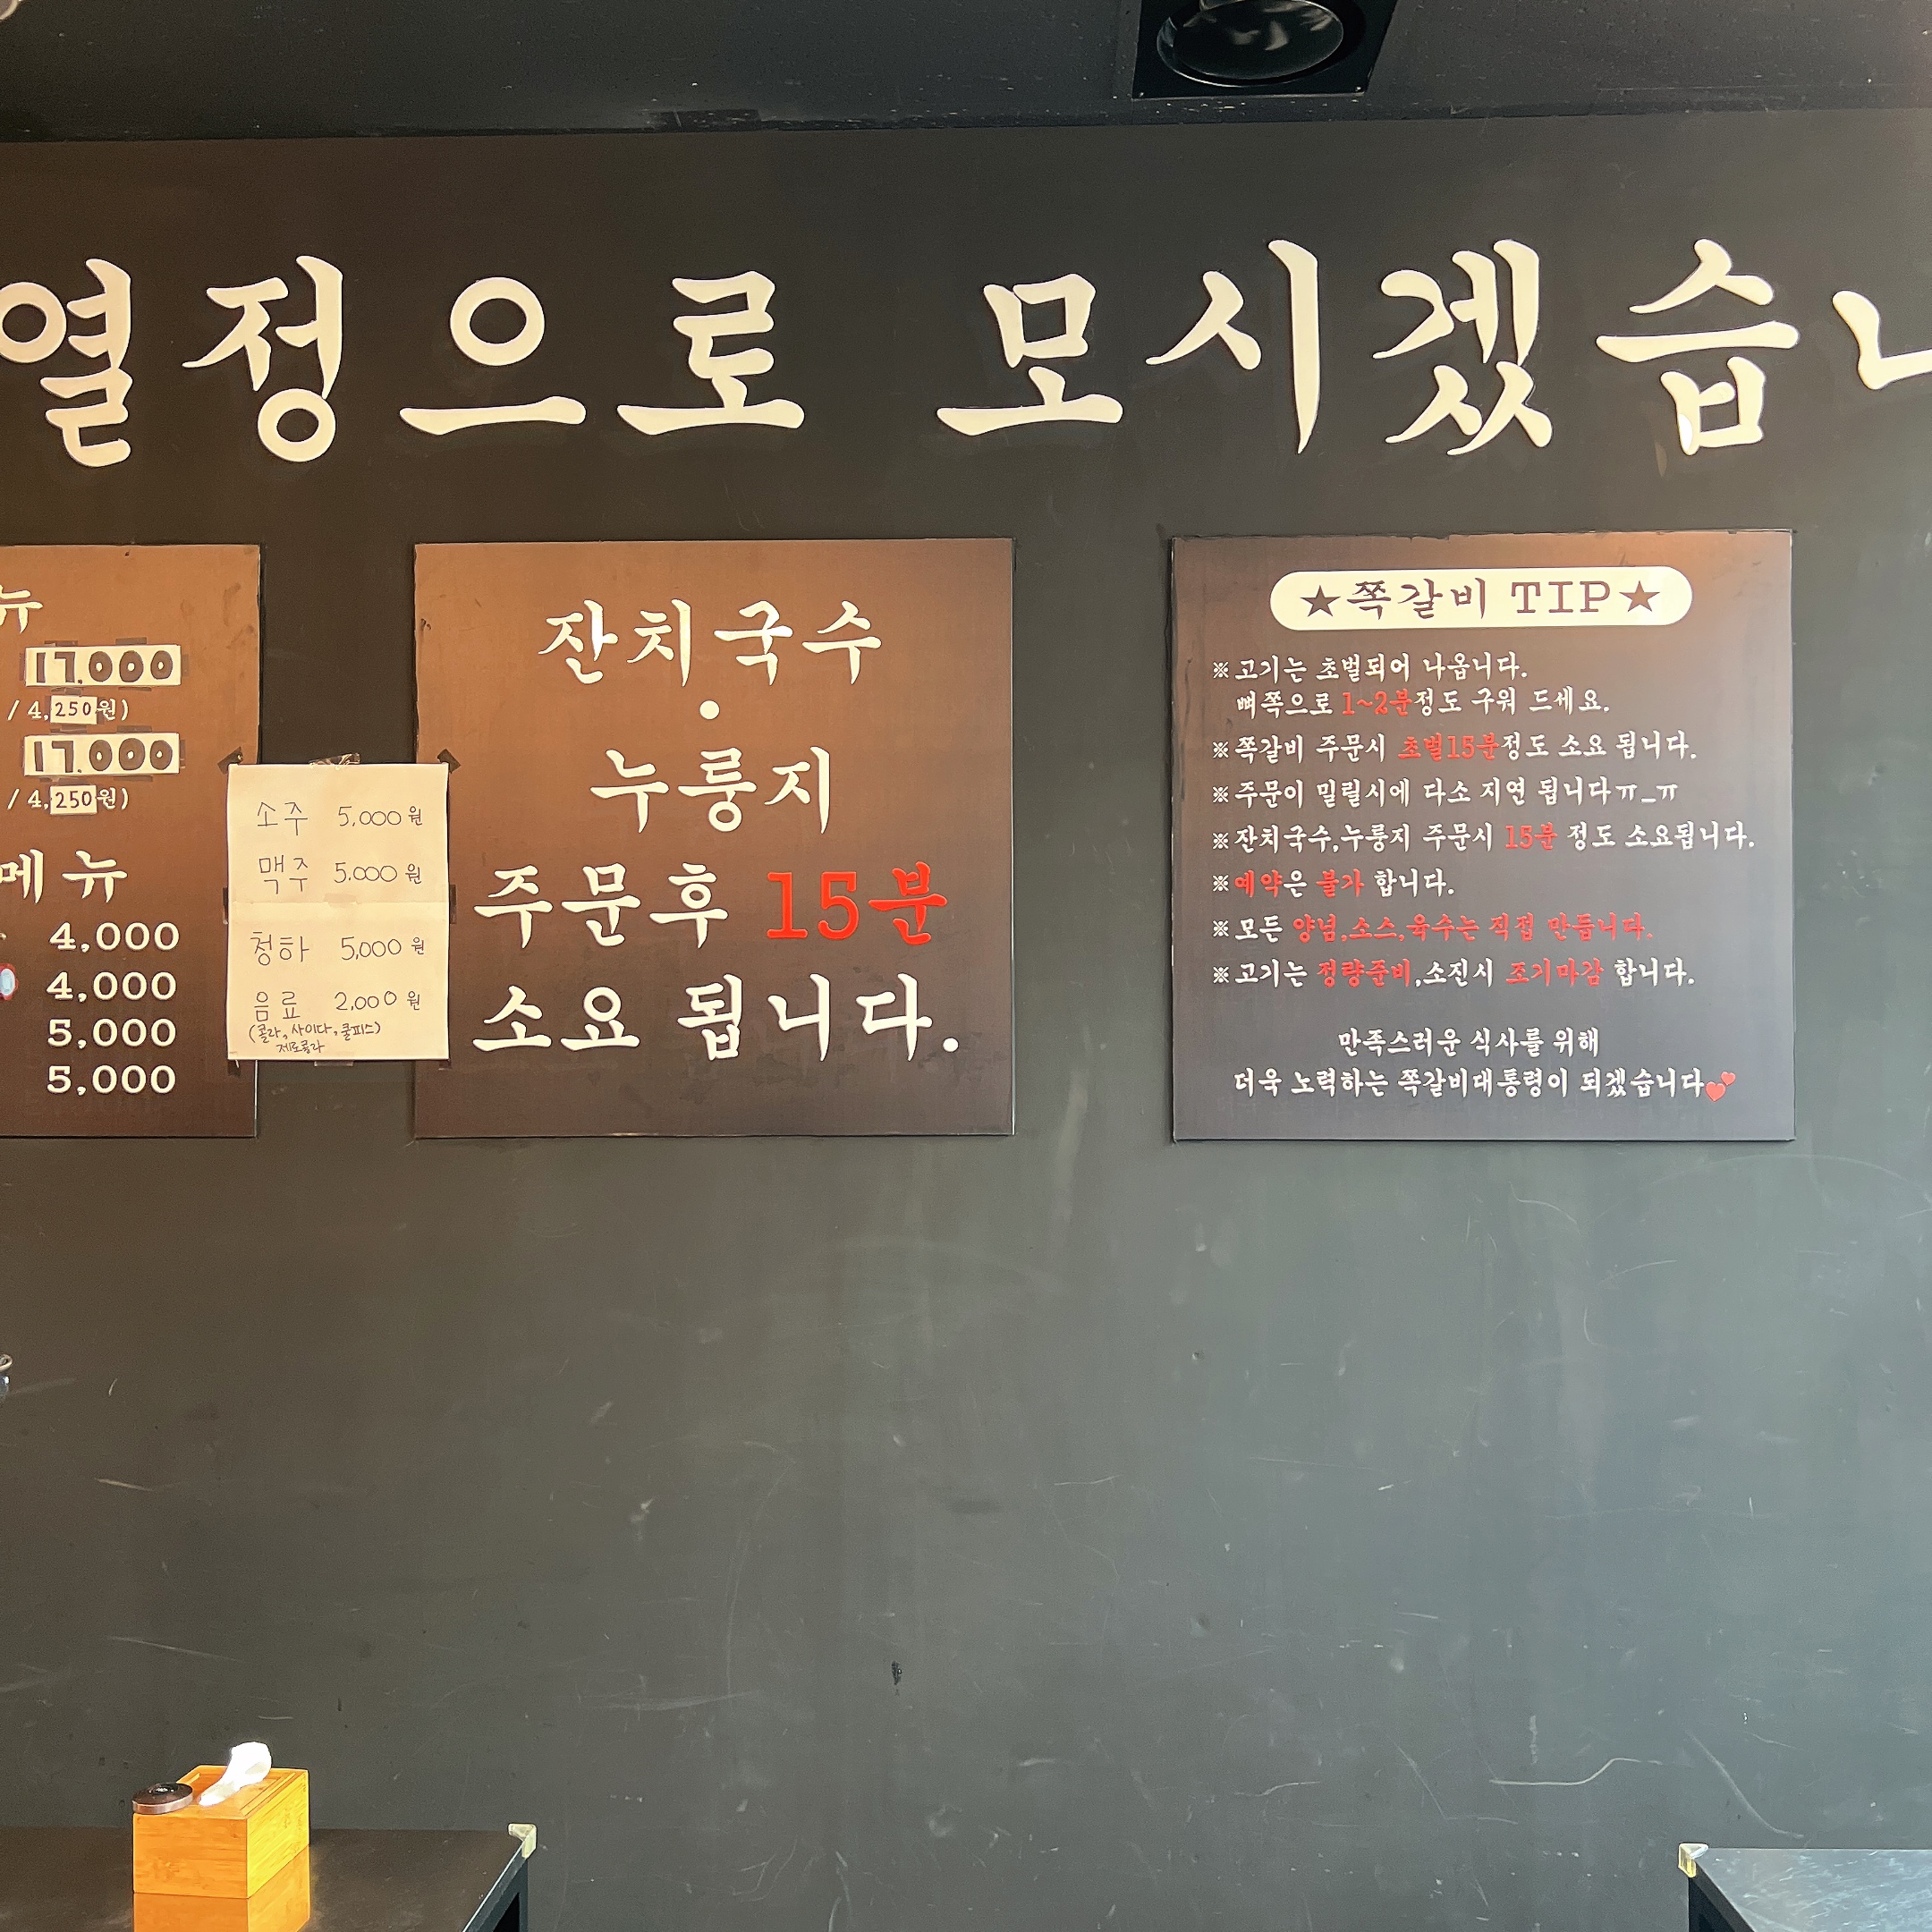 열정으로 모시겠습니
뉴
17.000
/ 4,250원)
17.000
/ 4,250원)
메뉴
4,000
4,000
5,000
5,000
소주 5,000원
맥주 5.000원
청하 5,000원
음료 2,000원
(콜라, 사이다, 쿨피스)
제로콜라
잔치국수
•
누룽지
주문후 15분
소요 됩니다.
★쪽갈비 TIP★
※고기는 초벌되어 나옵니다.
뼈쪽으로 1~2분정도 구워 드세요.
※쪽갈비 주문시 초벌15분정도 소요 됩니다.
※주문이 밀릴시에 다소 지연 됩니다ㅠ_ㅠ
※잔치국수,누룽지 주문시 15분 정도 소요됩니다.
※예약은 불가 합니다.
※모든 양념,소스,육수는 직접 만듭니다.
※고기는 정량준비,소진시 조기마감 합니다.
만족스러운 식사를 위해
더욱 노력하는 쪽갈비대통령이 되겠습니다💕